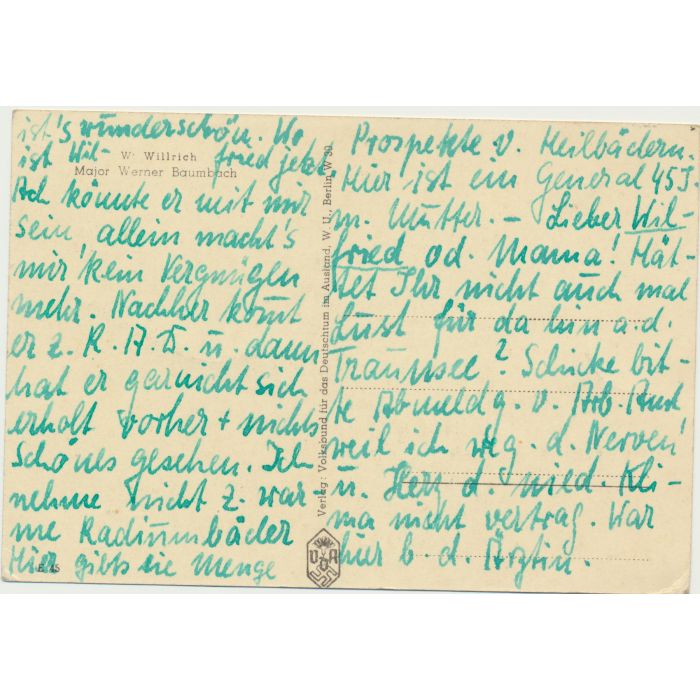 ist's wunderschön. Wo
ist Wil- fried jetzt
W. Willrich
Major Werner Baumbach
Ach könnte er mit mir
sein, allein macht's
mir kein Vergnügen
mehr. Nachher kommt
er z. R. A. D. u. dann
hat er garnicht sich
erholt vorher + nichts
Schönes gesehen. Ich
nehme nicht z. war-
me Radiumbäder
Hier gibts eine Menge
E 45
Verlag: Volksbund für das Deutschtum im Ausland, W. U., Berlin W 30
VDA
Prospekte v. Heilbädern.
Hier ist ein General 45 J.
m. Mutter. – Lieber Wil-
fried od. Mama! Hät-
tet Ihr nicht auch mal
Lust für da hin a. d.
Traunsee? Schicke bit-
te Abmeldg. v. Arb. Amt
weil ich weg. d. Nerven
u. Herz d. nied. Kli-
ma nicht vertrag. War
hier b. d. Ärztin.